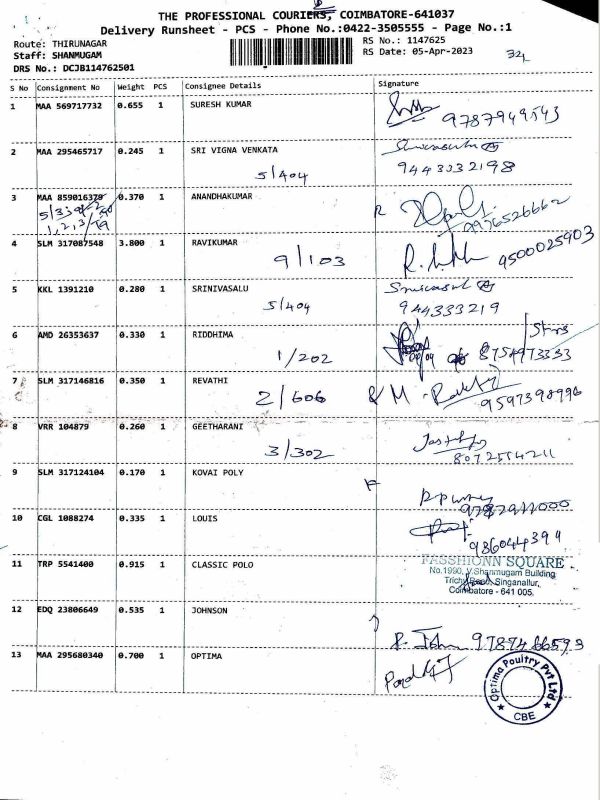 THE PROFESSIONAL COURIERS, COIMBATORE-641037
Delivery Runsheet - PCS - Phone No.:0422-3505555 - Page No.:1
Route: THIRUNAGAR RS No.: 1147625
Staff: SHANMUGAM RS Date: 05-Apr-2023
DRS No.: DCJB114762501
S No Consignment No Weight PCS Consignee Details Signature
1 MAA 569717732 0.655 1 SURESH KUMAR
9787949543
2 MAA 295465717 0.245 1 SRI VIGNA VENKATA
5/404 9443332198
3 MAA 859016379 0.370 1 ANANDHAKUMAR
9976526662
4 SLM 317087548 3.800 1 RAVIKUMAR
9/103 9500025903
5 KKL 1391210 0.280 1 SRINIVASALU
5/404 944333219
6 AMD 26353637 0.330 1 RIDDHIMA
1/202 8754973333
7 SLM 317146816 0.350 1 REVATHI
2/606 9597398996
8 VRR 104879 0.260 1 GEETHARANI
3/302 8072554211
9 SLM 317124104 0.170 1 KOVAI POLY
10 CGL 1088274 0.335 1 LOUIS
986044399
11 TRP 5541400 0.915 1 CLASSIC POLO
FASSHIONN SQUARE
No.1990, V.Shanmugam Building
Trichy Road, Singanallur,
Coimbatore - 641 005.
12 EDQ 23806649 0.535 1 JOHNSON
R. John 9787466593
13 MAA 295680340 0.700 1 OPTIMA
Optima Poultry Pvt Ltd
CBE